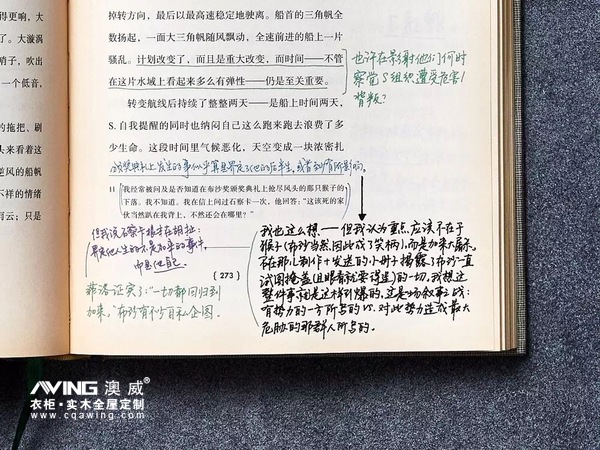 得更响，大
了。大漩涡
哨子，吹出
一个低音，
的拖把、刷
头来看着这
逆风的船帆
不祥的情绪
乌云；只是
掉转方向，最后以最高速稳定地驶离。船首的三角帆全
数扬起，一面大三角帆随风飘动，全速前进的船上一片
骚乱。计划改变了，而且是重大改变，而时间——不管
在这片水域上看起来多么有弹性——仍是至关重要。
转变航线后持续了整整两天——是船上时间两天，
S.自我提醒的同时也纳闷自己这么跑来跑去浪费了多
少生命。这段时间里气候恶化，天空变成一块浓密扎
也许在影射他们何时
察觉S组织遭受危害/
背叛？
颁奖典礼上发生的事似乎算是界定了他的后半生，或者到有所影响。
11 我经常被问及是否知道在布沙奖颁奖典礼上抢尽风头的那只猴子的
下落。我不知道。我在信上问过石察卡一次，他回答：“这该死的家
伙当然趴在我背上，不然还会在哪里？”
但我说石察卡撑才在胡扯：
界定他人生的不是知幸的事件，
而是他自己。
〔273〕
菲洛证实了：“一切都回归到
加来。”布沙有不少自私企图。
我也这么想——但我认为重点应该不在于
猴子（布沙当然因此成了笑柄），而是加来大屠杀。
在那儿制作+发送的小册子揭露了布沙一直
试图掩盖（且眼看就要得逞）的一切。我想这
整件事就是这样引爆的。这是场叙事之战：
有势力的一方所占的 VS. 对此势力造成最大
危胁的那群人所占的。
AWING澳威®
衣柜·实木全屋定制
www.cqawing.com